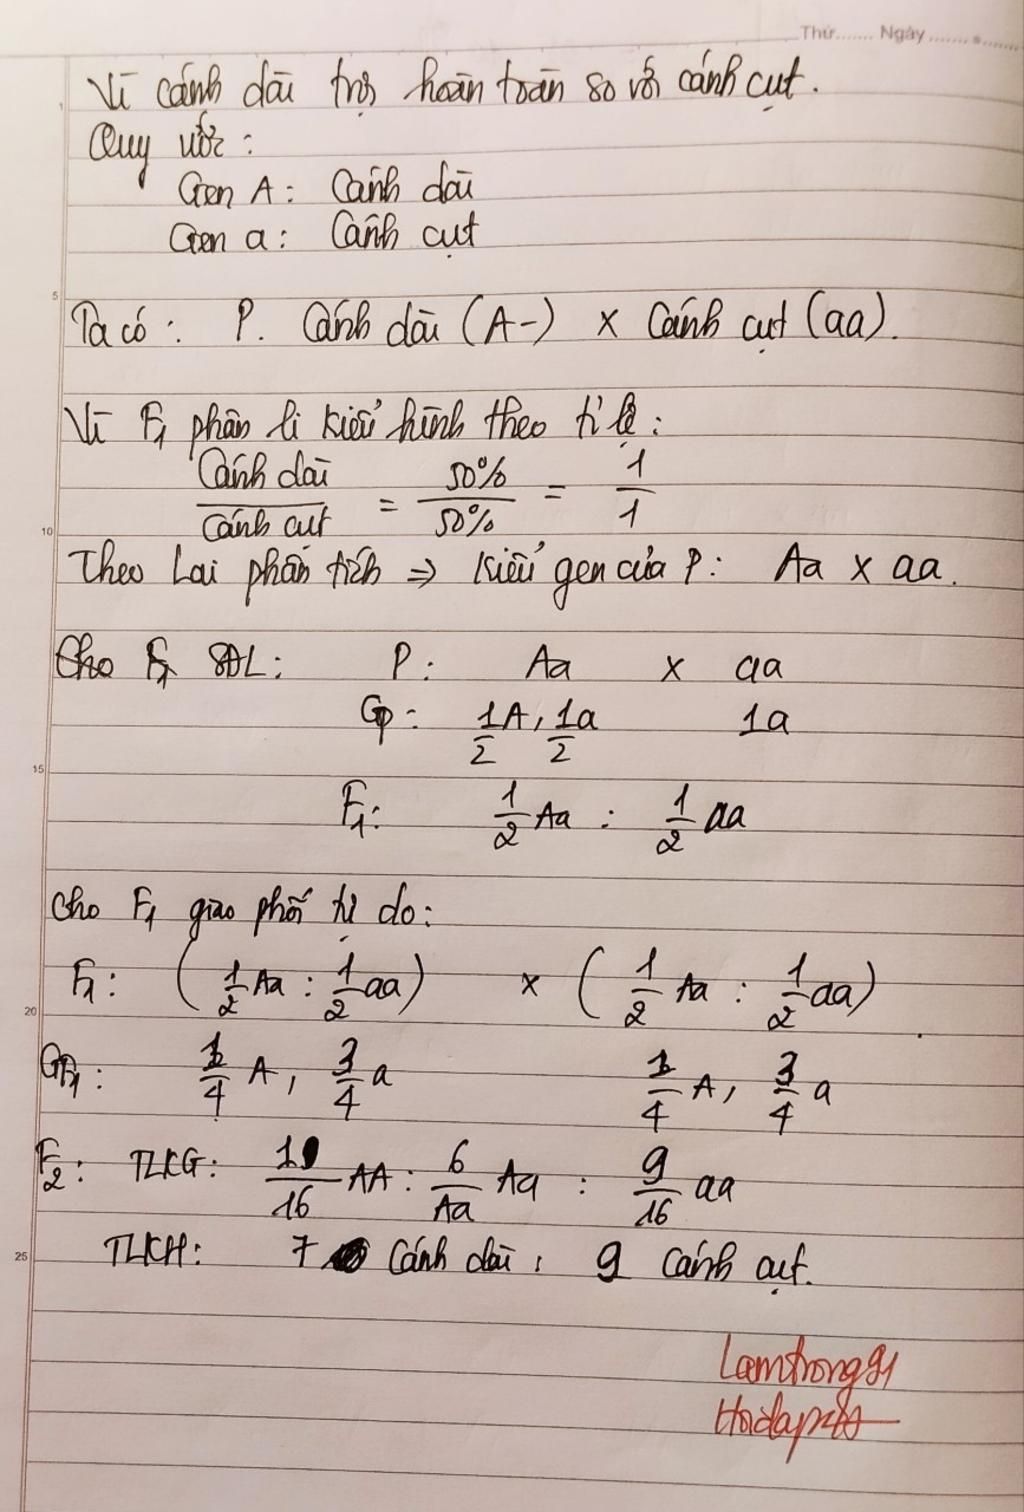 Thứ....... Ngày.......
Vì cánh dài trội hoàn toàn so với cánh cụt.
Quy ước:
Gen A: Cánh dài
Gen a: Cánh cụt
5
Ta có: P. Cánh dài (A-) x Cánh cụt (aa).
Vì F1 phân li kiểu hình theo tỉ lệ:
Cánh dài / Cánh cụt = 50% / 50% = 1/1
10
Theo Lai phân tích => Kiểu gen của P: Aa x aa.
Cho F1 SĐL: P: Aa x aa
Gp: 1/2 A, 1/2 a 1a
15
F1: 1/2 Aa : 1/2 aa
Cho F1 giao phối tự do:
F1: (1/2 Aa : 1/2 aa) x (1/2 Aa : 1/2 aa)
20
GF1: 1/4 A, 3/4 a 1/4 A, 3/4 a
F2: TLKG: 1/16 AA : 6/Aa Aa : 9/16 aa
TLKH: 7 Cánh dài : 9 Cánh cụt.
25
Lamtrong91